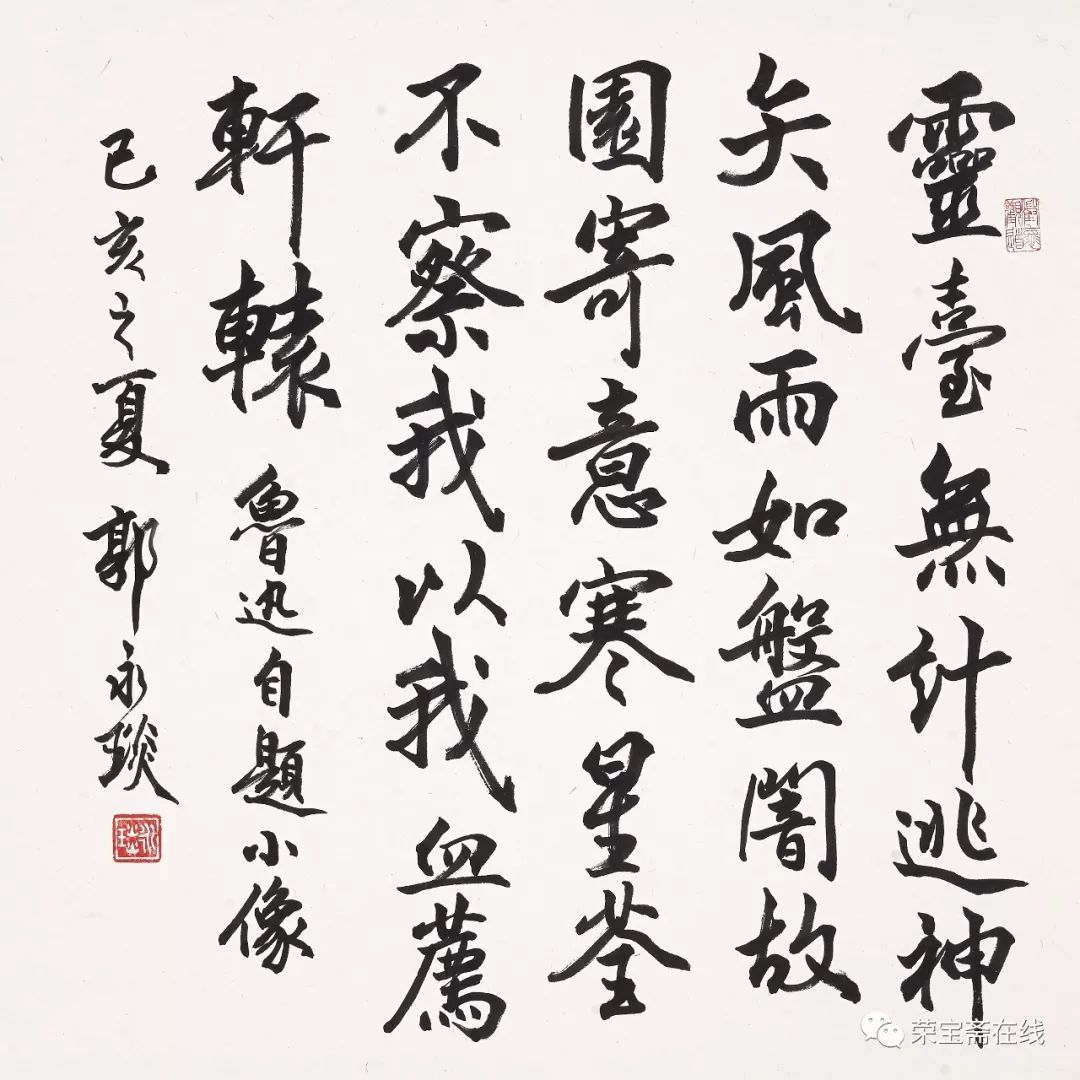 靈臺無計逃神
矢風雨如盤闇故
園寄意寒星荃
不察我以我血薦
軒轅 魯迅自題小像
己亥之夏 郭永琰
荣宝斋在线